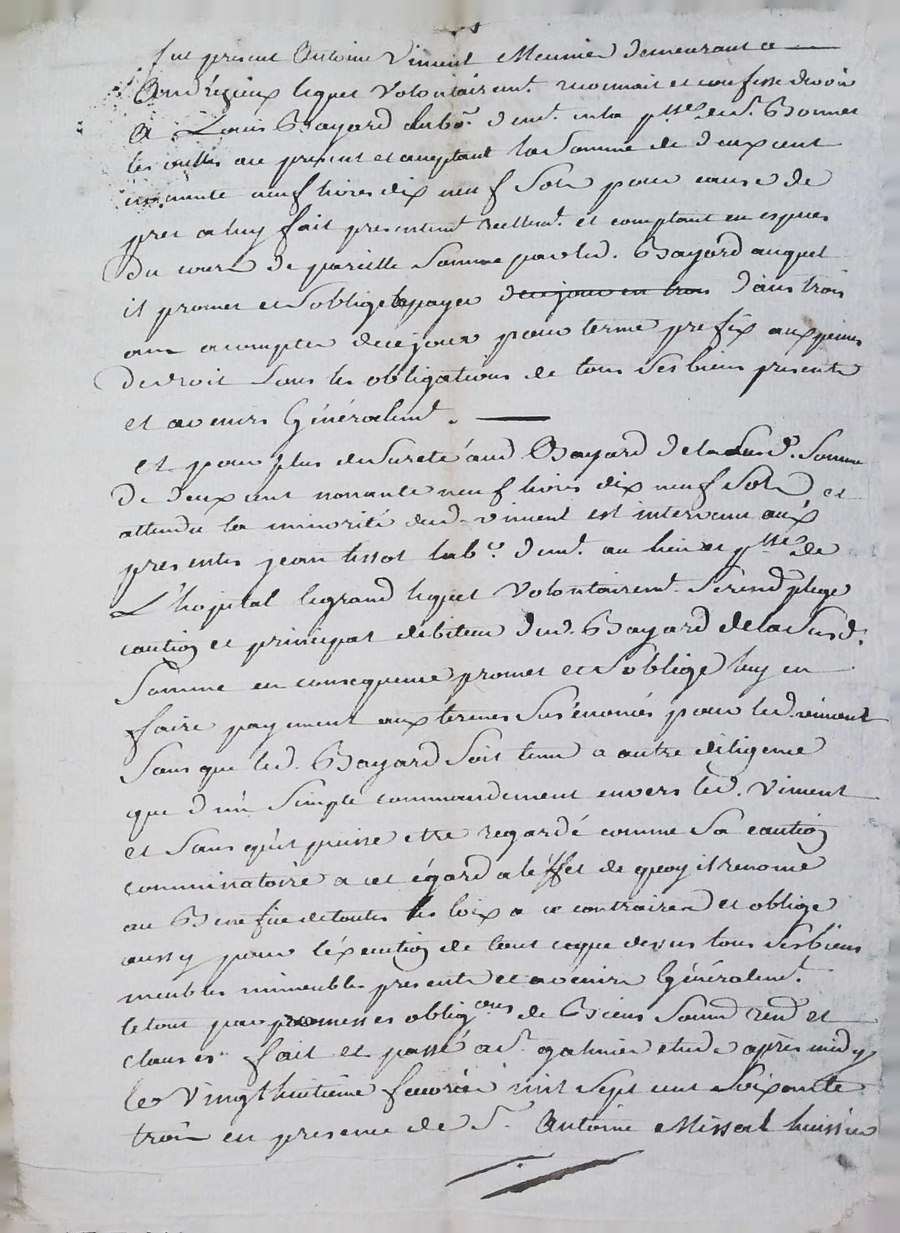 fut present Antoine Viment Meunier demeurant a
Andrézieux lequel volontairemt. reconnait et confesse devoir
a Louis Bayard labor. demt. en la psse. de st. Bonnet
les oulles au present et acceptant la somme de deux cent
nonante neuf livres dix neuf sols pour cause de
pret a luy fait presentemt. reellemt. et comptant en especes
du cours de pareille somme par led. Bayard auquel
il promet et soblige la payer de ce jour en trois dans trois
ans a compter de ce jour pour terme prefix aux peines
de droit sous les obligations de tous ses biens presents
et avenirs Généralemt.
et pour plus de sureté aud Bayard de la susd. somme
de deux cent nonante neuf livres dix neuf sols, et
attendu la minorité dud. viment est intervenu aux
presentes jean tissot labr. demt. au lieu et psse. de
L'hopital legrand lequel volontairemt. se rend plege
caution et principal debiteur dud. Bayard de la susd.
somme en consequence promet et soblige luy en
faire payement aux termes sus énoncés pour led. viment
sans que led. Bayard soit tenu a autre diligence
que d'un simple commandement envers led. Viment
et sans qu'il puisse etre regardé comme sa caution
comminatoire a cet égard a l'éffet de quoy il renonce
au Benefice de toutes les loix a ce contraires et oblige
aussy pour l'éxécution de tout ce que dessus tous ses biens
meubles immeubles presents et avenirs Généralemt.
le tout par promesses obligons de Biens soumd rend et
clauses fait et passé a st. galmier etude après midy
le vingt huitieme fevrier mil sept cent soixante
trois en presence de sr. Antoine Missol huissier